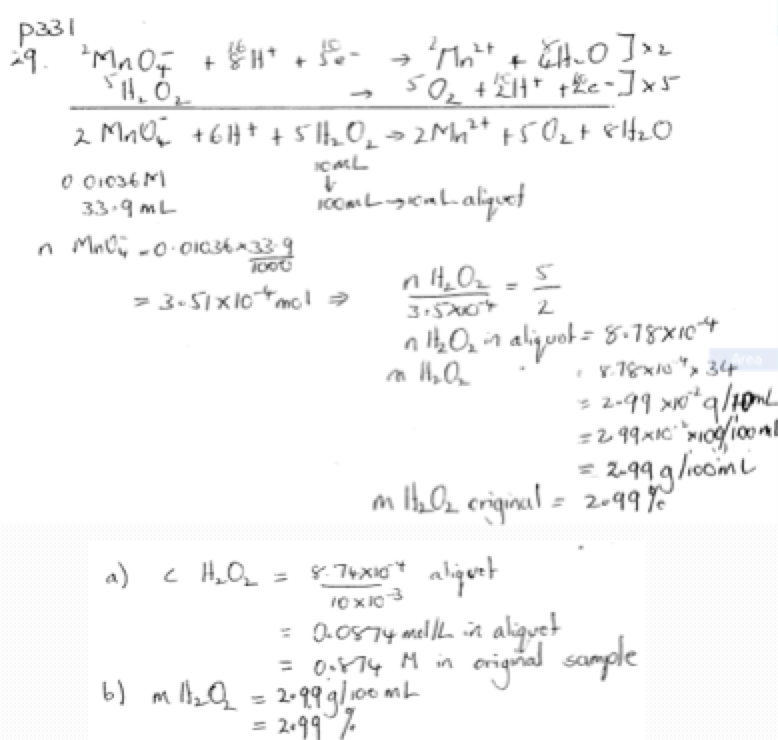 p331
29. ²MnO₄⁻ + ¹⁶8H⁺ + ¹⁰5e⁻ → ²Mn²⁺ + ⁸4H₂O ] x 2
⁵H₂O₂ → ⁵O₂ + ¹⁰2H⁺ + ¹⁰2e⁻ ] x 5
2 MnO₄⁻ + 6H⁺ + 5H₂O₂ → 2Mn²⁺ + 5O₂ + 8H₂O
0.01036M 10mL
33.9 mL ↓ 100mL → 10mL aliquot
n MnO₄⁻ = 0.01036 x 33.9/1000
= 3.51 x 10⁻⁴ mol ⇒ n H₂O₂/3.5x10⁻⁴ = 5/2
n H₂O₂ in aliquot = 8.78x10⁻⁴
m H₂O₂ = 8.78x10⁻⁴ x 34
= 2.99 x10⁻² g/10mL
= 2.99x10⁻² x100/100ml
= 2.99 g/100mL
m H₂O₂ original = 2.99%
a) c H₂O₂ = 8.74x10⁻⁴/10x10⁻³ aliquot
= 0.0874 mol/L in aliquot
= 0.874 M in original sample
b) m H₂O₂ = 2.99g/100 mL
= 2.99 %